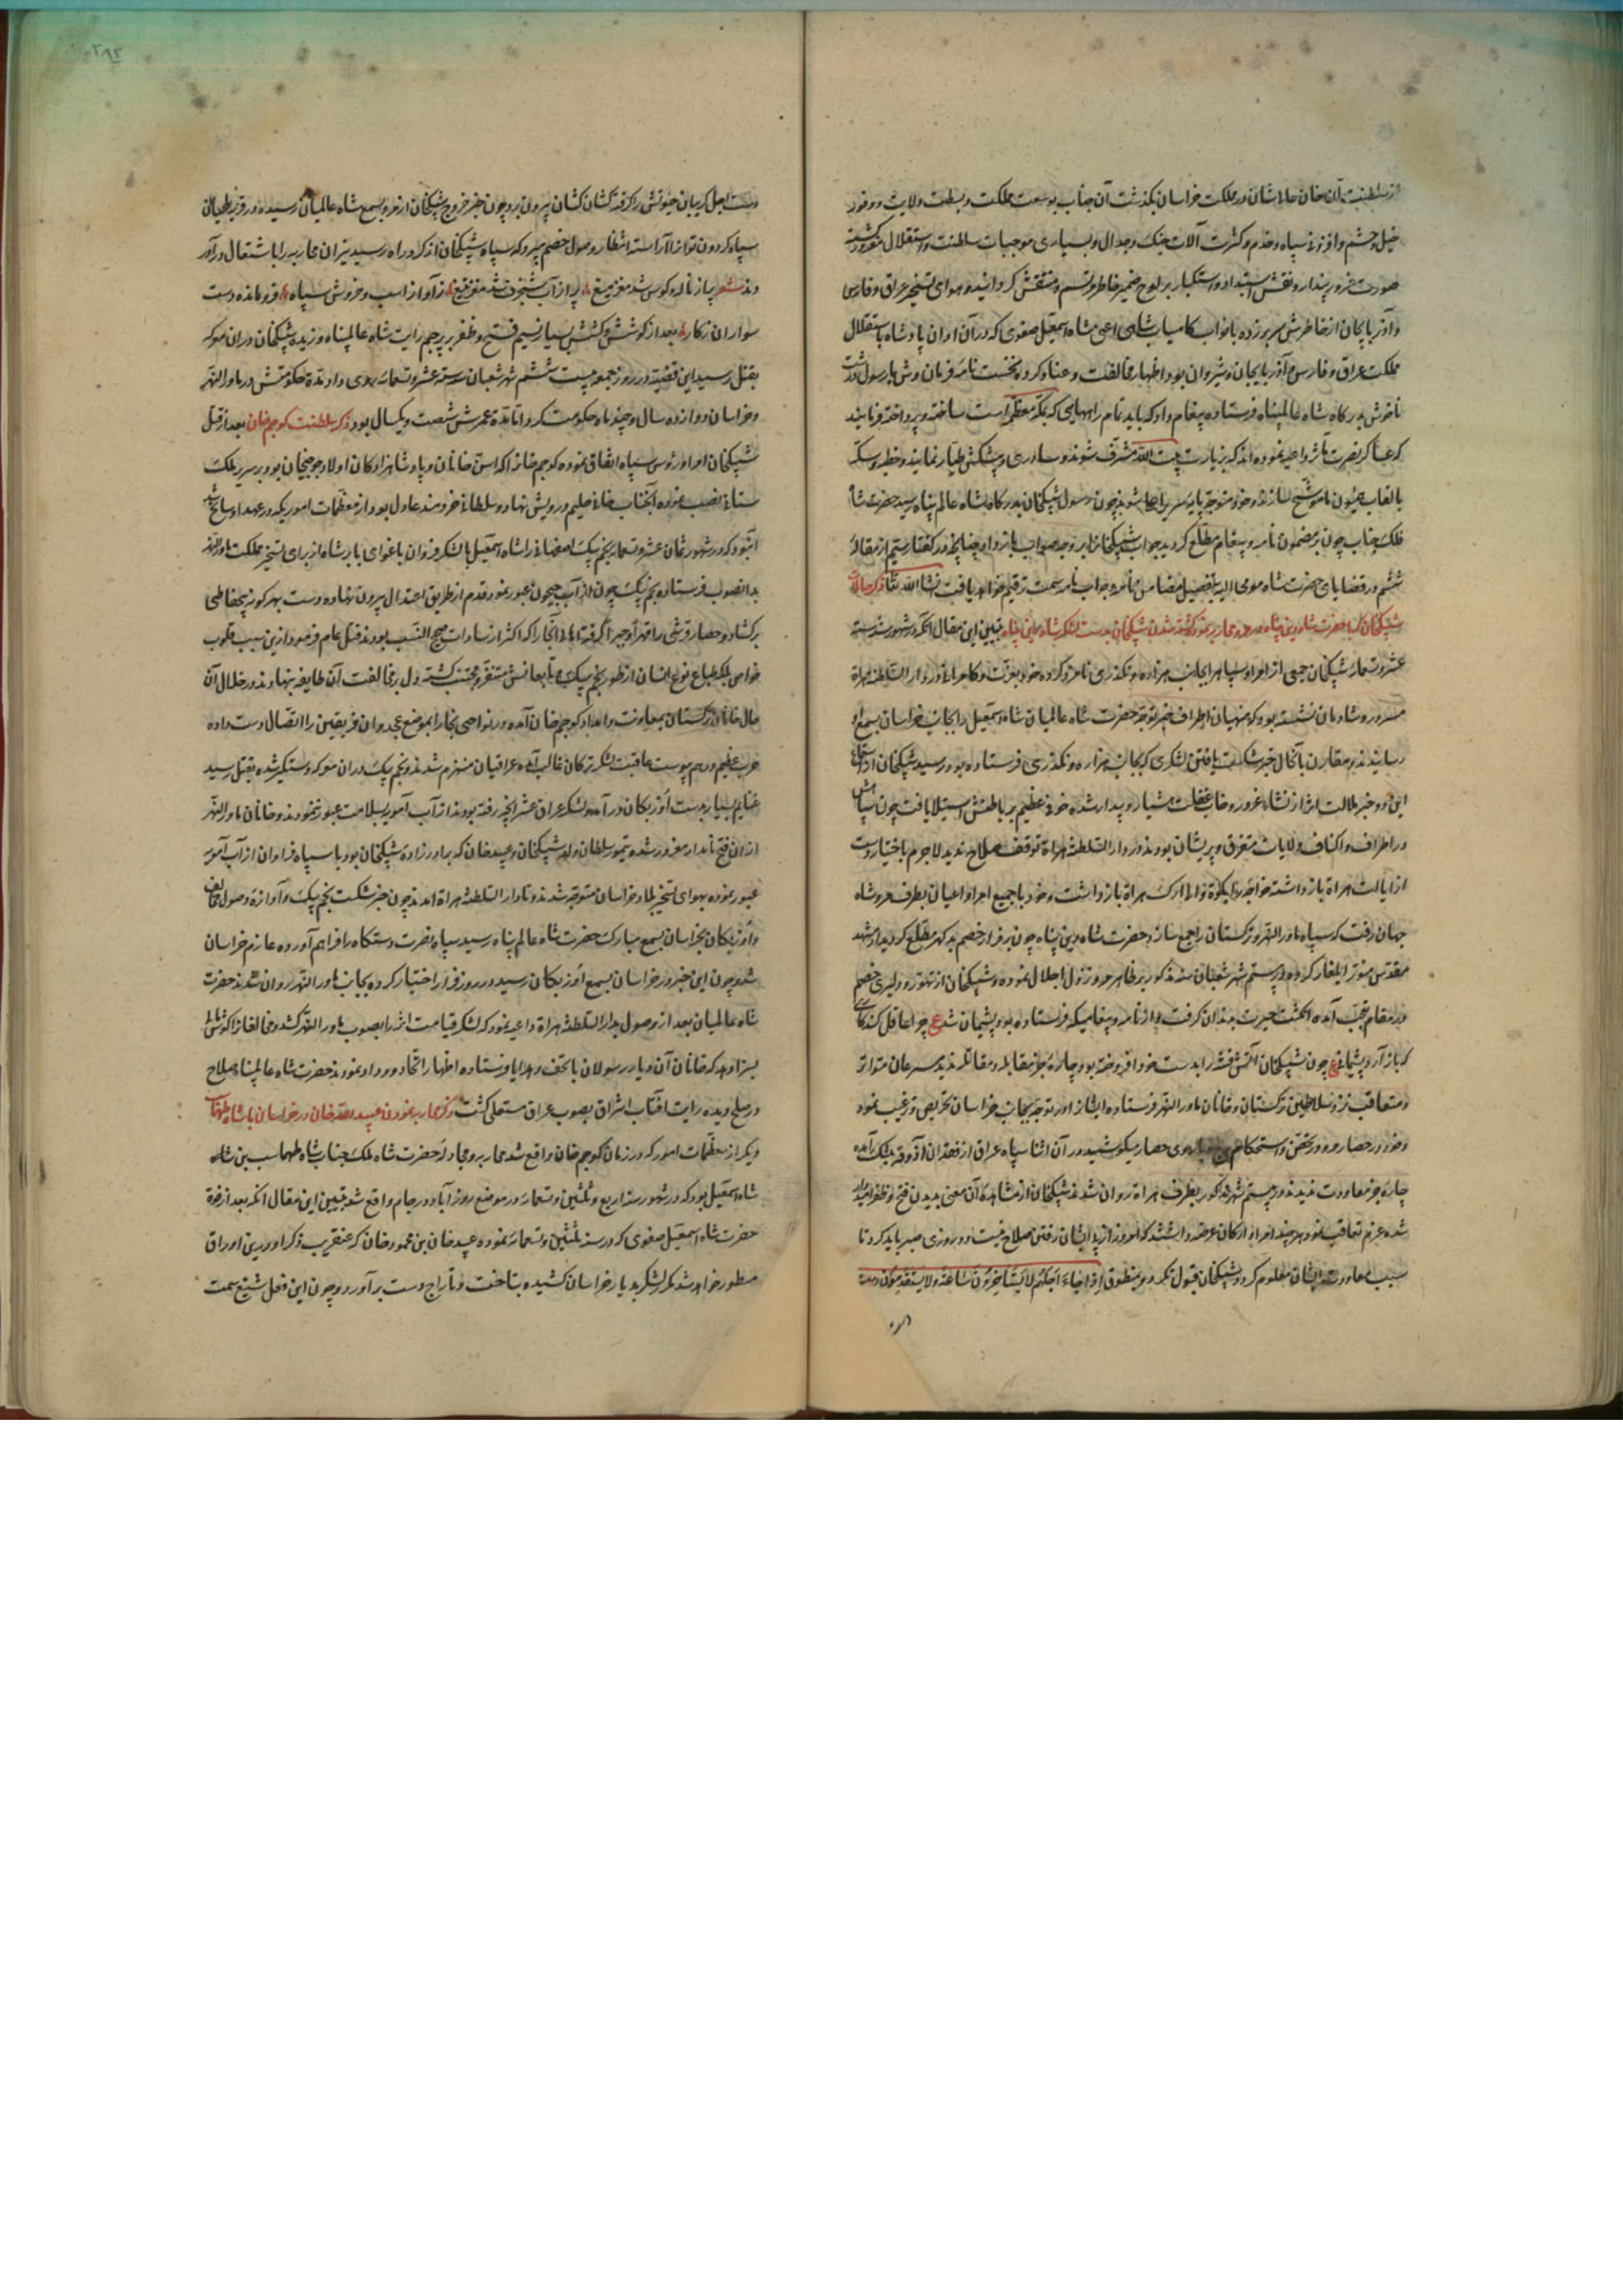 از سلطنت آن خان عالیشان در مملکت خراسان بگذشت آن جناب بوسعت مملکت و بسطت ولایت و وفور
خیل و حشم و افزونی سپاه و خدم و کثرت آلات جنک و جدال و بسیاری موجبات سلطنت و استقلال مغرور کشته
صورت غرور پندار و نقش استبداد و استکبار بر لوح ضمیر خاطر مرتسم و منقش کردانید و هوای تسخیر عراق و فارس
و آذربایجان از خاطرش سر برزده با نواب کامیاب شاهی اعنی شاه اسمعیل صفوی که در آن اوان پادشاه باستقلال
مملکت عراق و فارس و آذربایجان و شیروان بود اظهار مخالفت و عناد کرده نخست نامه فرمان وش با رسول درشت
ناخوش بدرکاه شاه عالمپناه فرستاده پیغام داد که باید تمام راههایی که بمکه معظم است ساخته و پرداخته فرمایند
که عساکر نصرت مآثر داعیه نموده اند که بزیارت بیت الله مشرف شوند و ساوری و پیشکش طیار نمایند و خطبه و سکه
بالقاب همیون ما موشح سازند و خود متوجه پایه سریر اعلا شوند چون رسول شیبکخان بدرکاه شاه عالم پناه رسید حضرت شاه
فلک جناب چون بر مضمون نامه و پیغام مطلع کردید جواب شیبکخانرا بر وجه صواب باز داد چنانچه در کفتار ستیم از مقاله
ششم در قضایای حضرت شاه مومی الیه بتفصیل مضامین نامه و جواب نامه سمت ترقیم خواهد یافت انشا الله تعالی ذکر حالات
شیبکخان کبا حضرت شاه دین پناه در مرو محاربه نمود کشته شدن شیبکخان بدست لشکر شاه دین پناه تبیین این مقال آنکه در شهور سنه ستة
عشر و تسعمایه شیبکخان جمعی از امرا و سپاه را بجانب هزاره و نکدری نامزد کرده خود بعزت و کامرانی در دار السلطنه هراة
مسرور و شادمان نشسته بود که منهیان اطراف خبر توجه حضرت شاه عالمیان شاه اسمعیل را بجانب خراسان بسمع او
رسانیدند و مقارن با آنحال خبر شکست یافتن لشکری که بجانب هزاره و نکدری فرستاده بود رسید شیبکخان از استماع
این دو خبر ملالت اثر از نشاء غرور و خاب غفلت هشیار و بیدار شده خوفی عظیم بر باطنش استیلا یافت چون سپاهش
در اطراف و اکناف ولایات متفرق و پریشان بودند در دار السلطنه هراة توقف صلاح ندید لاجرم باختیار دست
از ایالت هراة باز داشته خواجه را بکوتوالی ارک هراة باز داشت و خود با جمیع امرا و اعیان بطرف مرو شاه
جهان رفت که سپاه ماورا النهر و ترکستان را جمع سازد و حضرت شاه دین پناه چون بر فرار خصم بدکهر مطلع کردید از مشهد
مقدس منور ایلغار کرده در بیستم شهر شعبان سنه مذکور بر ظاهر مرو نزول اجلال نموده و شیبکخان از تهور و دلیری خصم
در مقام تعجب آمده انکشت حیرت بدندان کرفت و از نامه و پیغامیکه فرستاده بود پشیمان شد ع چرا عاقل کند کاری
که باز آرد پشیمانی ع چون شیبکخان آتش فتنه را بدست خود افروخته بود چاره جز مقابله و مقاتله ندید مسرعان متواتر
و متعاقب نزد سلاطین ترکستان و خانان ماورا النهر فرستاده ایشانرا در توجه بجانب خراسان تحریص و ترغیب نمود
و خود در حصار مرو در تحصن و استحکام برج و باروی حصار بیکوشید در آن اثنا سپاه عراق از فقدان آذوقه بتنک آمده
چاره جز معاودت ندیدند در بیستم شهر مذکور بطرف هراة روان شدند شیبکخان از مشاهده آن معنی بدیدن فتح و ظفر امیدوار
شده عزم تعاقب نمود هر چند امرا و ارکان عرضه داشتند که امروز از پی ایشان رفتن صلاح نیست دو روزی صبر باید کرد تا
سبب معاودت ایشان معلوم کردد شیبکخان قبول نکرد و بمنطوق اذا جاء اجلهم لا یستاخرون ساعة ولا یستقدمون دست
دست اجل کریبان حیوتش را کرفته کشان کشان بیرون برد چون خبر خروج شیبکخان از مرو بسمع شاه عالمیان رسیده در قریه طهیان
سپاه کردون توان را آراسته انتظار وصول خصم میبرد که سپاه شیبکخان از کرد راه رسید نیران محاربه را باشتعال در آور
دند شعر بیاز ناله کوس شد مغز میغ پر از آب شنجرف شد مغز تیغ ز آواز اسب و خروش سپاه فرو مانده دست
سواران ز کار بعد از کوشش و کشش بسیار نسیم فتح و ظفر بر پرچم رایت شاه عالمپناه وزیده شیبکخان در ان معرکه
بقتل رسید این قضیه در روز جمعه بیست ششم شهر شعبان سنه ستة عشر و تسعمایه روی داد مدة حکومتش در ماورا النهر
و خراسان دوازده سال و چند ماه حکومت کرد اما مدة عمرش شصت و یکسال بود ذکر سلطنت کوجم خان بعد از قتل
شیبکخان امرا و رؤس سپاه اتفاق نموده کوجم خانرا که اسن خانان و پادشاهزادکان اولاد جوجیخان بود بر سریر ملک
ستانی نصب نموده آنجناب خانی حلیم و درویش نهاد و سلطانی خردمند عادل بود از معظمات اموریکه در عهد او سانح شد
آنبود که در شهور ثمان عشر و تسعمایه نجم بیک اصفهانی را شاه اسمعیل با لشکر فزوان باغوای بابر شاه از برای تسخیر مملکت ماورا النهر
بدانصوب فرستاده نجم بیک چون از آب جیحون عبور نمود قدم از طریق اعتدال بیرون نهاده دست بهر کونه بیحفاظی
برکشاد و حصار قرشی را قهرا و جبرا کرفته اهالی آنجا را که اکثر از سادات صحیح النسب بودند قتل عام فرمود ازین سبب قلوب
خواص بلکه طباع نوع انسان از طور نجم بیک و تابعانش متنفر و مجتنب کشته دل بر مخالفت آن طایفه نهادند در خلال آن
حال خانان ترکستان بمعاونت و امداد کوجم خان آمده در نواحی بخارا بموضع غجدوان فریقین را اتصال دست داده
حرب عظیم در هم پیوست عاقبت لشکر ترکان غالب آمده عراقیان منهزم شدند و نجم بیک در ان معرکه دستکیر شده بقتل رسید
غنایم بسیار بدست اوزبکان در آمد و لشکر عراق عشر آنچه رفته بودند از آب آمویه بسلامت عبور نمودند و خانان ماورا النهر
از ان فتح نامدار مغرور شده تیمور سلطان ولد شیبکخان و عبید خان که برادرزاده شیبکخان بود با سپاه فراوان از آب آمویه
عبور نموده بهوای تسخیر بلاد خراسان متوجه شدند و تا دار السلطنه هراة آمدند چون خبر شکست نجم بیک و آوازه وصول مخالف
و اوزبکان بخراسان بسمع مبارک حضرت شاه عالم پناه رسید سپاه نصرت دستکاه را فراهم آورده عازم خراسان
شد و چون این خبر در خراسان بسمع اوزبکان رسید در روز فرار اختیار کرده بجانب ماورا النهر روان شدند حضرت
شاه عالمیان بعد از وصول بدار السلطنه هراة داعیه نمود که لشکر قیامت اثر را بصوب ماورا النهر کشد و مخالفانرا کوشمالی
بسزا دهد که خانان آن دیار رسولان با تحف و هدایا فرستاده اظهار اتحاد و وداد نمودند حضرت شاه عالمپناه صلاح
در صلح دیده رایت افتاب اشراق بصوب عراق مستعلی کشت ذکر محاربه نمودن عبید الله خان در خراسان با شاه طهماسب
دیکر از معظمات امور که در زمان کوجم خان واقع شد محاربه و مجادله حضرت شاه ملک جناب شاه طهماسب بن شاه
شاه اسمعیل بود که در شهور سنه اربع و ثلثین و تسعمایه در موضع روزآباد در جام واقع شد تبیین این مقال آنکه بعد از فوة
حضرت شاه اسمعیل صفوی که در سنه ثلثین و تسعمایه نموده عبید خان بن محمود خان که عنقریب ذکر او درین اوراق
مسطور خواهد شد مکرر لشکر بدیار خراسان کشیده بتاخت و تاراج دست برآورد و چون این فعل شنیع سمت